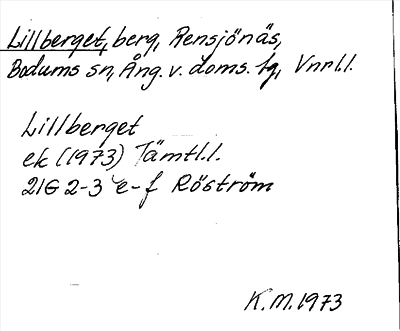 Lillberget, berg, Rensjönäs,
Bodums sn, Ång. v. doms. lg, Vnrl.l.
Lillberget
ek (1973) Jämtl.l.
21G 2-3 e-f Röström
K.M. 1973